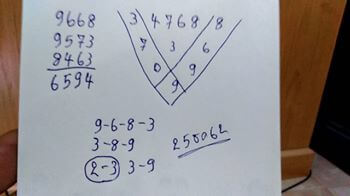 9668
9573
8463
6594
3 4 7 6 8 8
7 3 6
0 9
9
9-6-8-3
3-8-9
2-3 3-9
250062